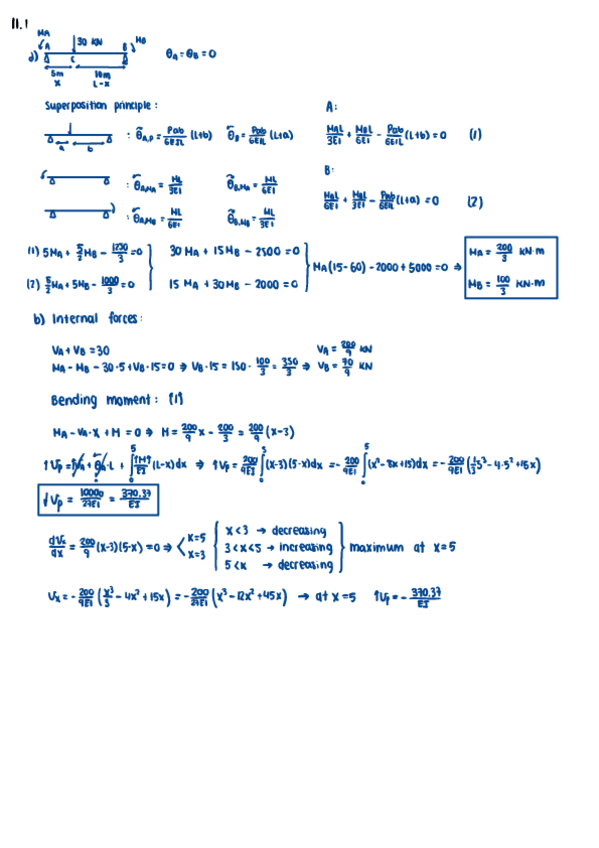 11.1
MA
A
30 KN
B
MB
a)
C
θA = θB = 0
5m
10m
X
L-X
Superposition principle:
A:
a
b
: θA,P = Pab/6EIL (L+b)
θB = Pab/6EIL (L+a)
MAL/3EI + MBL/6EI - Pab/6EIL (L+b) = 0 (1)
B:
: θA,MA = ML/3EI
θB,MA = ML/6EI
MAL/6EI + MBL/3EI - Pab/6EIL (L+a) = 0 (2)
: θA,MB = ML/6EI
θB,MB = ML/3EI
(1) 5MA + 5/2 MB - 1250/3 = 0
30 MA + 15 MB - 2500 = 0
MA (15-60) - 2000 + 5000 = 0 ⇒
MA = 200/3 KN·m
(2) 5/2 MA + 5MB - 1000/3 = 0
15 MA + 30 MB - 2000 = 0
MB = 100/3 KN·m
b) Internal forces:
VA + VB = 30
VA = 200/9 KN
MA - MB - 30·5 + VB·15 = 0 ⇒ VB·15 = 150 - 100/3 = 350/3 ⇒ VB = 70/9 KN
Bending moment: (1)
MA - VA·X + M = 0 ⇒ M = 200/9 x - 200/3 = 200/9 (x-3)
↑VP = VA + θA·L + ∫₀⁵ ↑M↑/EI (L-x)dx ⇒ ↑VP = 200/9EI ∫₀⁵ (x-3)(5-x)dx = - 200/9EI ∫₀⁵ (x² - 8x + 15)dx = - 200/9EI (1/3 5³ - 4·5² + 15x)
↓VP = 10000/27EI = 370.37/EI
dVx/dx = 200/9 (x-3)(5-x) = 0 ⇒
x=5
x=3
x < 3 → decreasing
3 < x < 5 → increasing
5 < x → decreasing
maximum at x=5
Vx = - 200/9EI (x³/3 - 4x² + 15x) = - 200/27EI (x³ - 12x² + 45x) → at x=5 ↑VP = - 370.37/EI